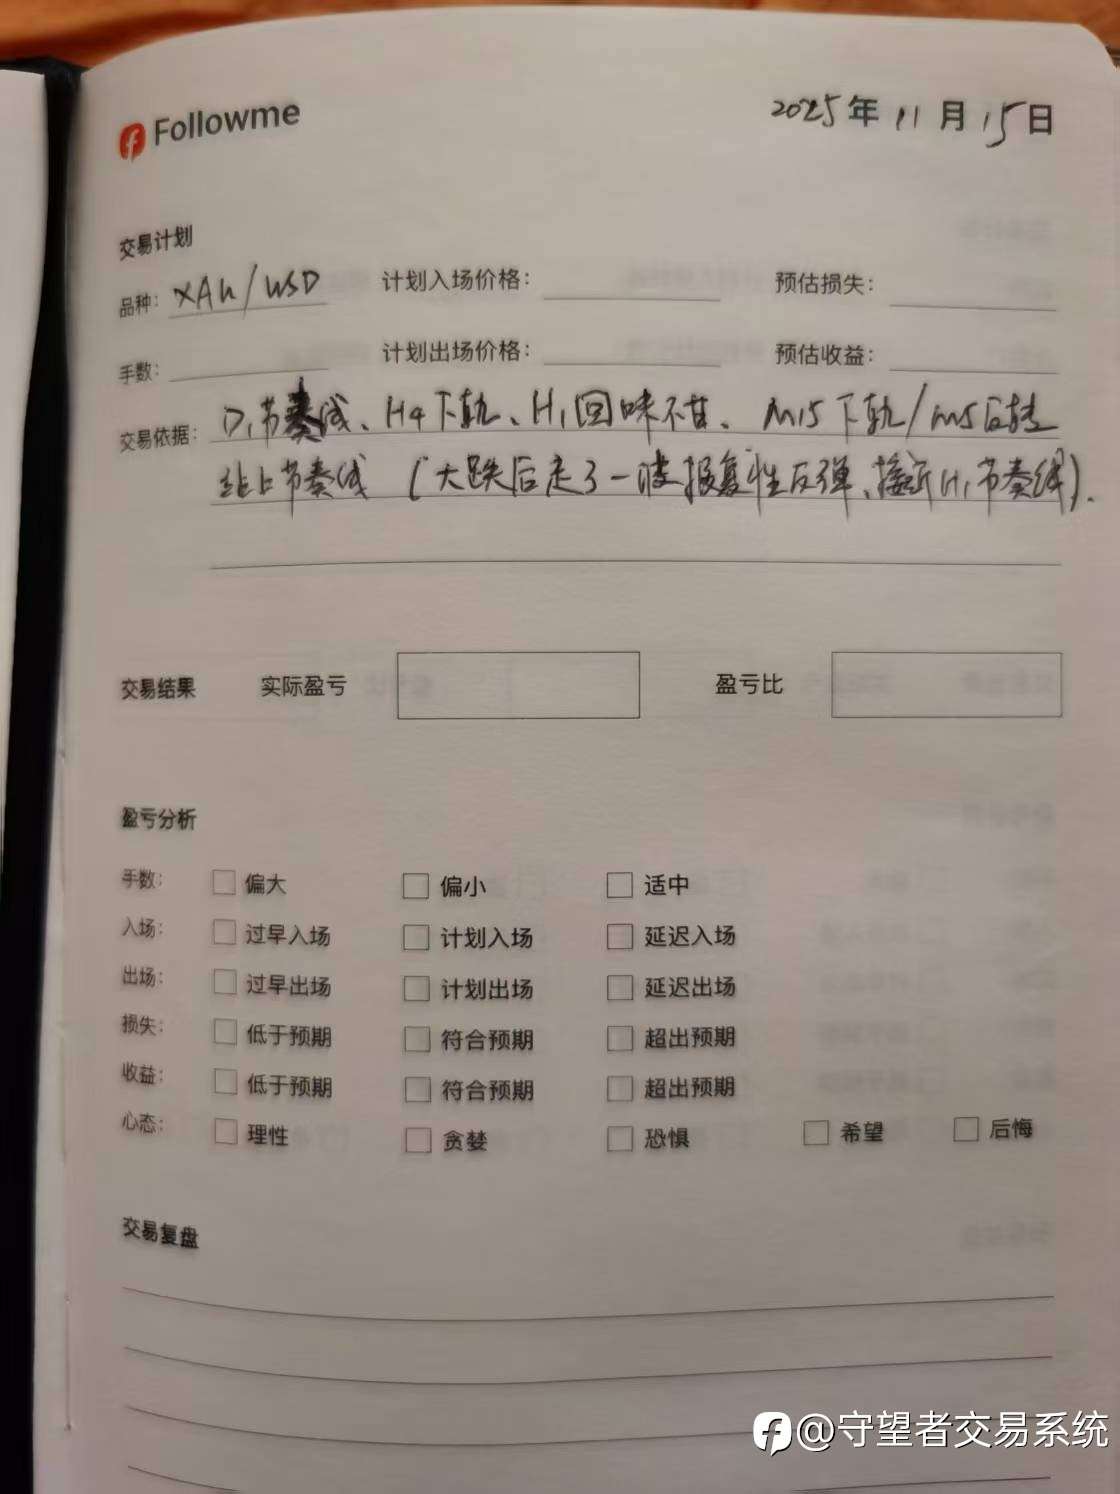 Followme
2025年11月15日
交易计划
品种: XAU/USD 计划入场价格: 预估损失:
手数: 计划出场价格: 预估收益:
交易依据: D1节奏线、H4下轨、H1回味不甘、M15下轨/M5反转
站上节奏线 (大跌后走了一波报复性反弹、接近H1节奏线).
交易结果 实际盈亏 盈亏比
盈亏分析
手数: 偏大 偏小 适中
入场: 过早入场 计划入场 延迟入场
出场: 过早出场 计划出场 延迟出场
损失: 低于预期 符合预期 超出预期
收益: 低于预期 符合预期 超出预期
心态: 理性 贪婪 恐惧 希望 后悔
交易复盘
@守望者交易系统